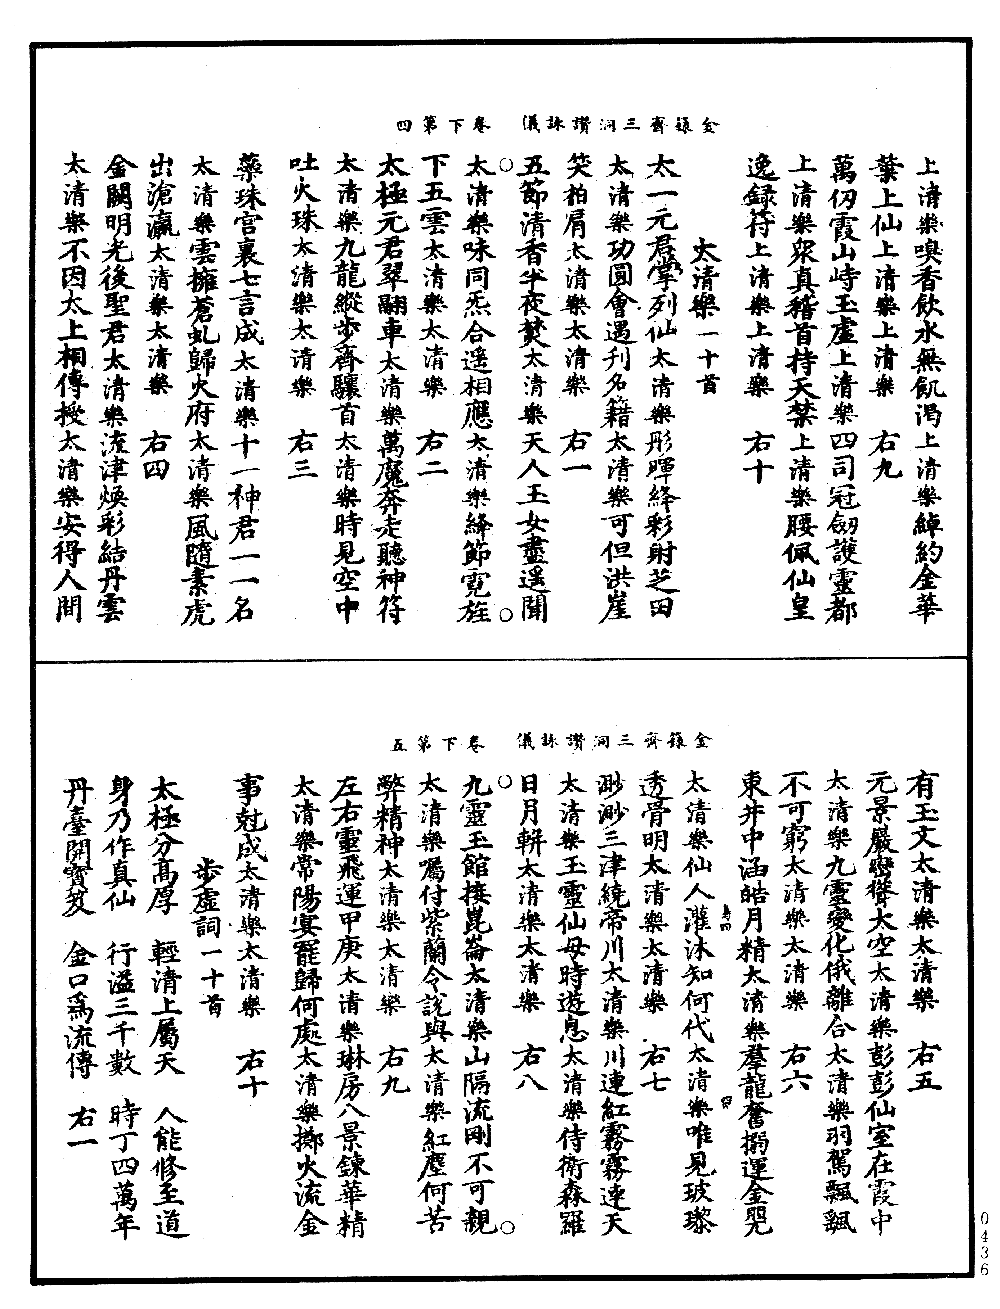 金籙齋三洞讚詠儀　卷下第四
上清樂嗅香飲水無飢渴上清樂綽約金華
葉上仙上清樂上清樂　右九
萬仞霞山峙玉虛上清樂四司冠劒護靈都
上清樂衆真稽首持天禁上清樂腰佩仙皇
逸錄符上清樂上清樂　右十
太清樂一十首
太一元君掌列仙太清樂彤暉絳彩射芝田
太清樂功圓會遇刋名籍太清樂可但洪崖
笑拍肩太清樂太清樂　右一
五節清香半夜焚太清樂天人玉女盡遥聞
太清樂味同炁合遥相應太清樂絳節霓旌
下五雲太清樂太清樂　右二
太極元君翠翮車太清樂萬魔奔走聽神符
太清樂九龍縱步齊驤首太清樂時見空中
吐火珠太清樂太清樂　右三
蘂珠宮裏七言成太清樂十一神君一一名
太清樂雲擁蒼虬歸火府太清樂風隨素虎
出滄瀛太清樂太清樂　右四
金闕明光後聖君太清樂流津煥彩結丹雲
太清樂不因太上相傳授太清樂安得人間
金籙齋三洞讚詠儀　卷下第五
有玉文太清樂太清樂　右五
元景嚴巒聳太空太清樂彭彭仙室在霞中
太清樂九靈變化俄離合太清樂羽駕飄飄
不可窮太清樂太清樂　右六
東井中涵皓月精太清樂羣龍奮搦運金兕
太清樂仙人灌沐知何代太清樂唯見玻瓈
透骨明太清樂太清樂　右七
渺渺三津繞帝川太清樂川連紅霧霧連天
太清樂玉靈仙母時遊息太清樂侍衛森羅
日月輧太清樂太清樂　右八
九靈玉館接崑崙太清樂山隔流剛不可親
太清樂囑付紫蘭令說與太清樂紅塵何苦
弊精神太清樂太清樂　右九
左右靈飛運甲庚太清樂琳房八景鍊華精
太清樂常陽宴罷歸何處太清樂擲火流金
事尅成太清樂太清樂　右十
步虛詞一十首
太極分高厚　輕清上屬天　人能修至道
身乃作真仙　行溢三千數　時丁四萬年
丹臺開寶笈　金口爲流傳　右一
0436